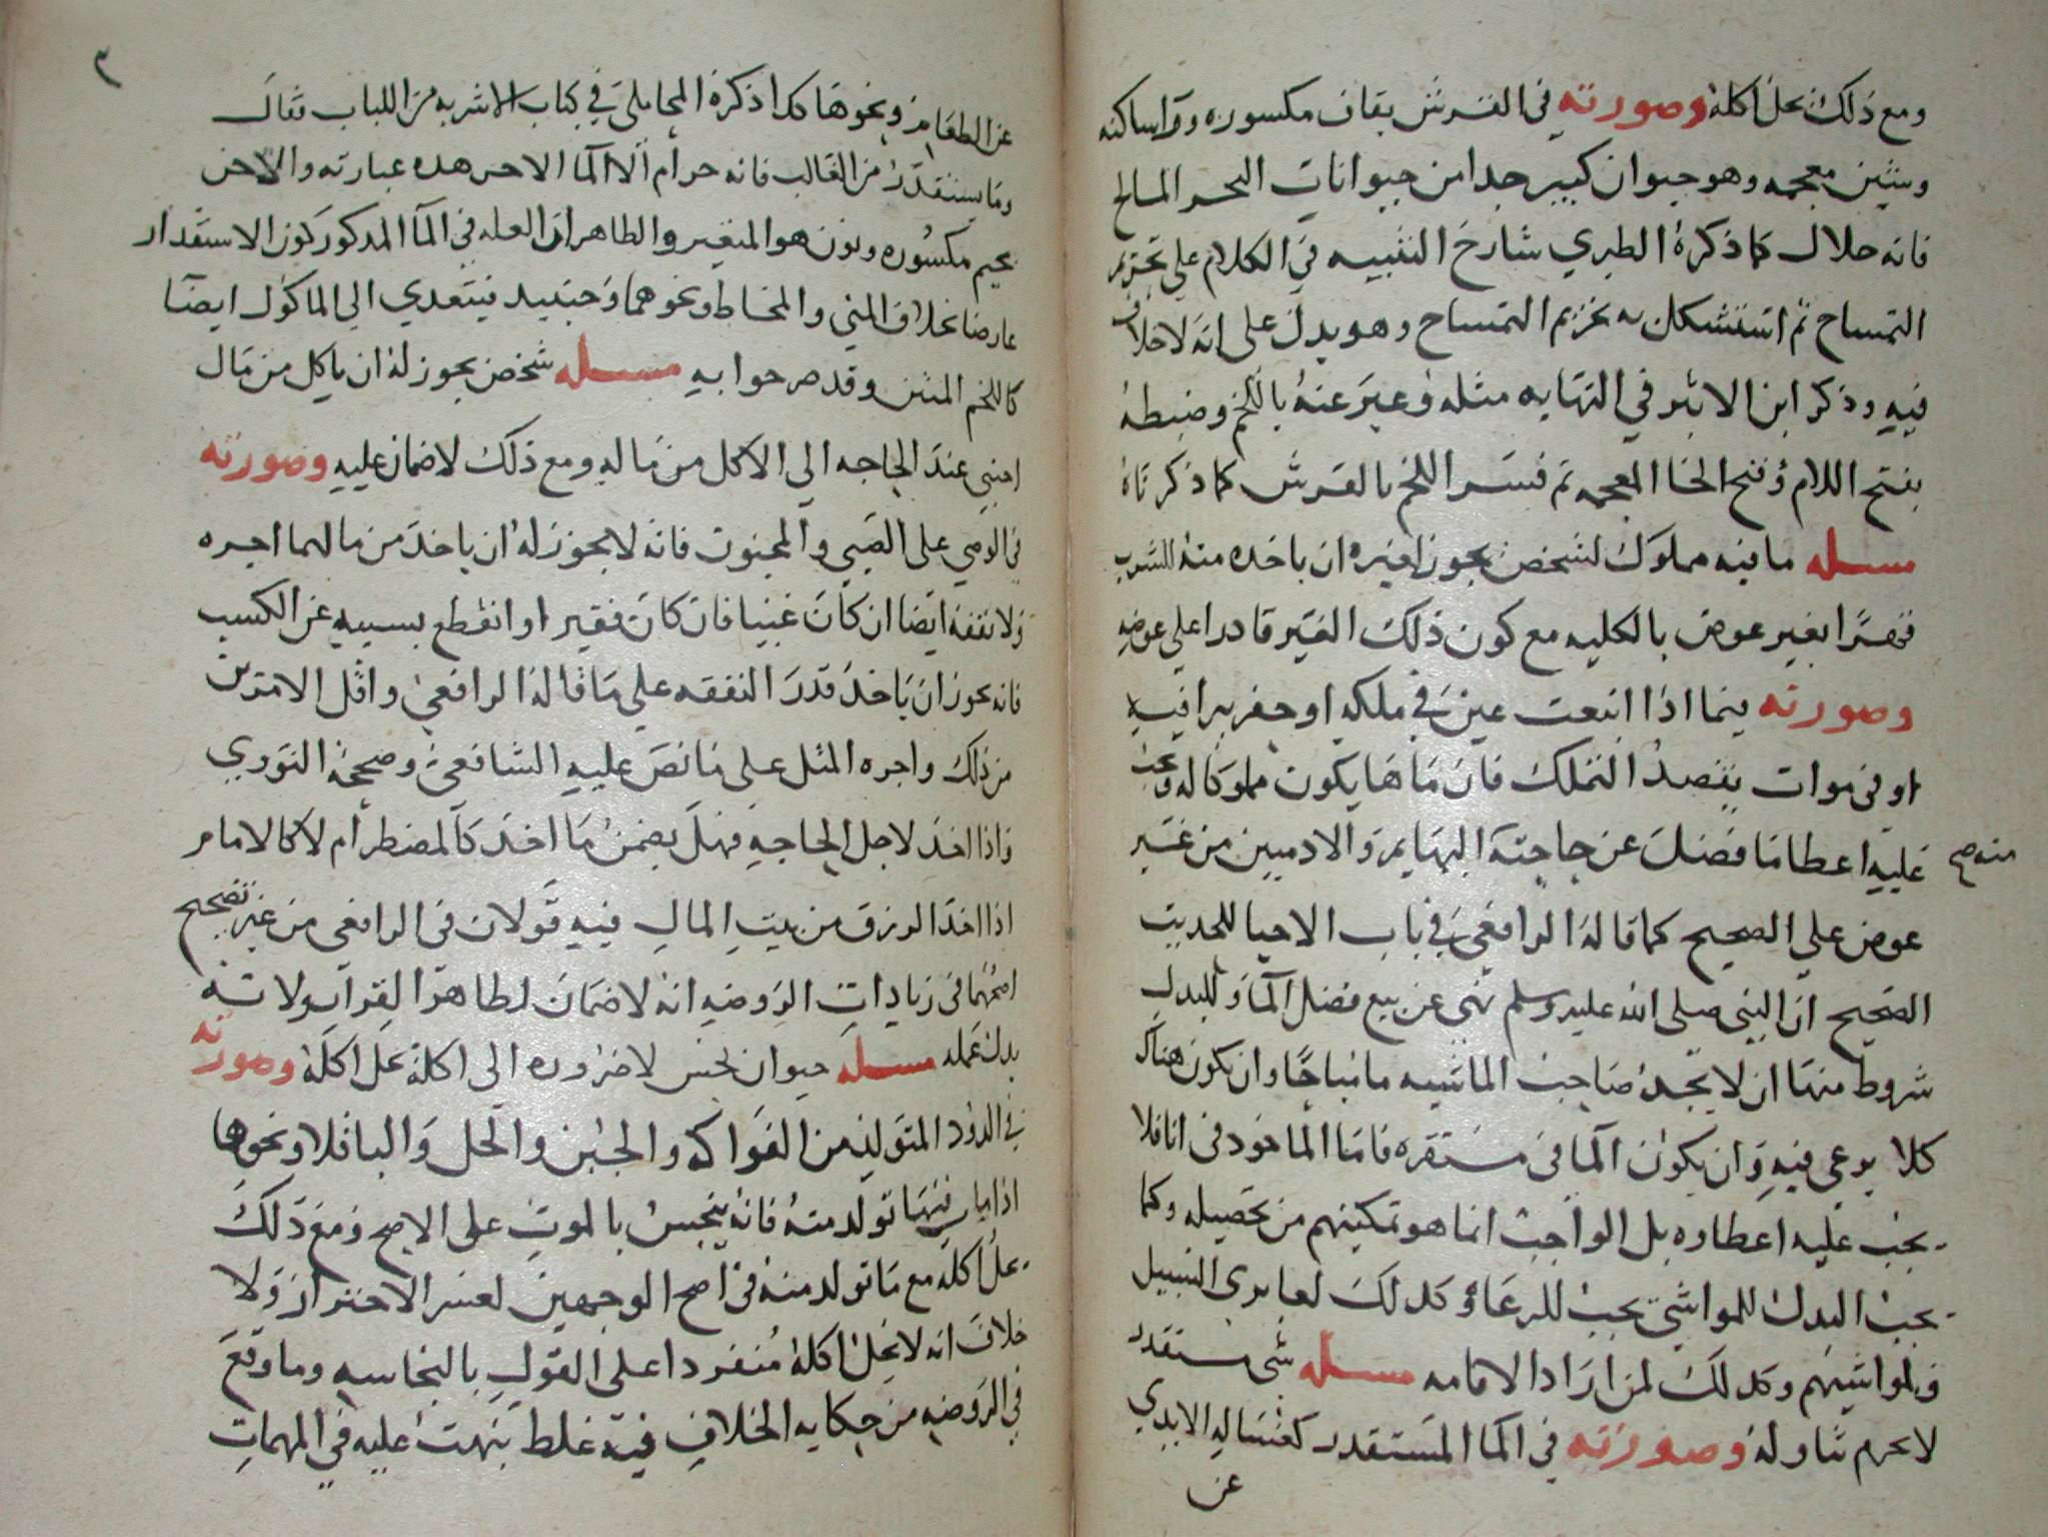 ومع ذلك يحل اكله وصورته في القرش بقاف مكسوره ورا ساكنه
وشين معجمه وهو حيوان كبير جدا من حيوانات البحر المالح
فانه حلال كما ذكره الطبري شارح التنبيه في الكلام على تحريم
التمساح ثم استشكل به تحريم التمساح وهو يدل على انه لا خلاف
فيه وذكر ابن الاثير في النهايه مثله وعبر عنه باللخم وضبطه
بفتح اللام وفتح الخا المعجمه ثم فسر اللخم بالقرش كما ذكرناه
مسله ما فيه مملوك لشخص يجوز لغيره ان ياخده منه للشرب
قهرا بغير عوض بالكليه مع كون ذلك الغير قادرا على عوضه
وصورته فيما اذا انبعت عين في ملكه او حفر بيرا فيه
او في موات بقصد التملك فان ماها يكون مملوكا له ويجب
عليه اعطا ما فضل عن حاجته البهايم والادميين من غير
منه صح
عوض على الصحيح كما قاله الرافعي في باب الاحيا للحديث
الصحيح ان النبي صلى الله عليه وسلم نهى عن بيع فضل الما وللبدل
شروط منها ان لا يجد صاحب الماشيه ما مباحا وان يكون هناك
كلا يرعى فيه وان يكون الما في مستقره فاما الماخود في انا فلا
يجب عليه اعطاوه بل الواجب انما هو تمكينهم من تحصيله وكما
يجب البدل للمواشي يجب للرعاة وكدلك لعابري السبيل
ولمواشيهم وكدلك لمن اراد الاقامه مسله شي مستقدر
لا يحرم تناوله وصورته في الما المستقدر كغساله الايدي
عن
٢
عن الطعام ونحوها كدا ذكره المحاملي في كتاب الاشربه من اللباب فقال
وما يستقدر من الغالب فانه حرام الا الما الاجن هده عبارته والاجن
بجيم مكسوره ونون هو المتغير والظاهر ان العله في الما المدكور كون الاستقدار
عارضا بخلاف المني والمخاط ونحوهما وحينيد فيتعدي الي الماكول ايضا
كاللخم المنتن وقد صرحوا به مسله شخص يجوز له ان ياكل من مال
اجنبي عند الحاجه الى الاكل من ماله ومع ذلك لا ضمان عليه وصورته
في الوصي على الصبي والمجنون فانه لا يجوز له ان ياخد من مالهما اجره
ولا نفقه ايضا ان كان غنيا فان كان فقيرا وانقطع بسببه عن الكسب
فانه يجوز ان ياخد قدر النفقه على ما قاله الرافعي واقل الامرين
من ذلك واجره المثل على ما نص عليه الشافعي وصححه النووي
واذا اخد لاجل الحاجه فهل يضمن ما اخد كالمضطر ام لا كالامام
اذا اخد الرزق من بيت المال فيه قولان في الرافعي من غير تصحيح
اصحهما في زيادات الروضه انه لا ضمان لظاهر القران ولانه
بدل عمله مسله حيوان نجس لا ضروره الى اكله يحل اكله وصورته
في الدود المتولد من الفواكه والجبن والخل والباقلا ونحوها
اذا مات فيها تولد منه فانه ينجس بالموت على الاصح ومع ذلك
يحل اكله مع ما تولد منه في اصح الوجهين لعسر الاحتراز ولا
خلاف انه لا يحل اكله منفردا على القول بالنجاسه وما وقع
في الروضه من حكايه الخلاف فيه غلط نبهت عليه في المهمات